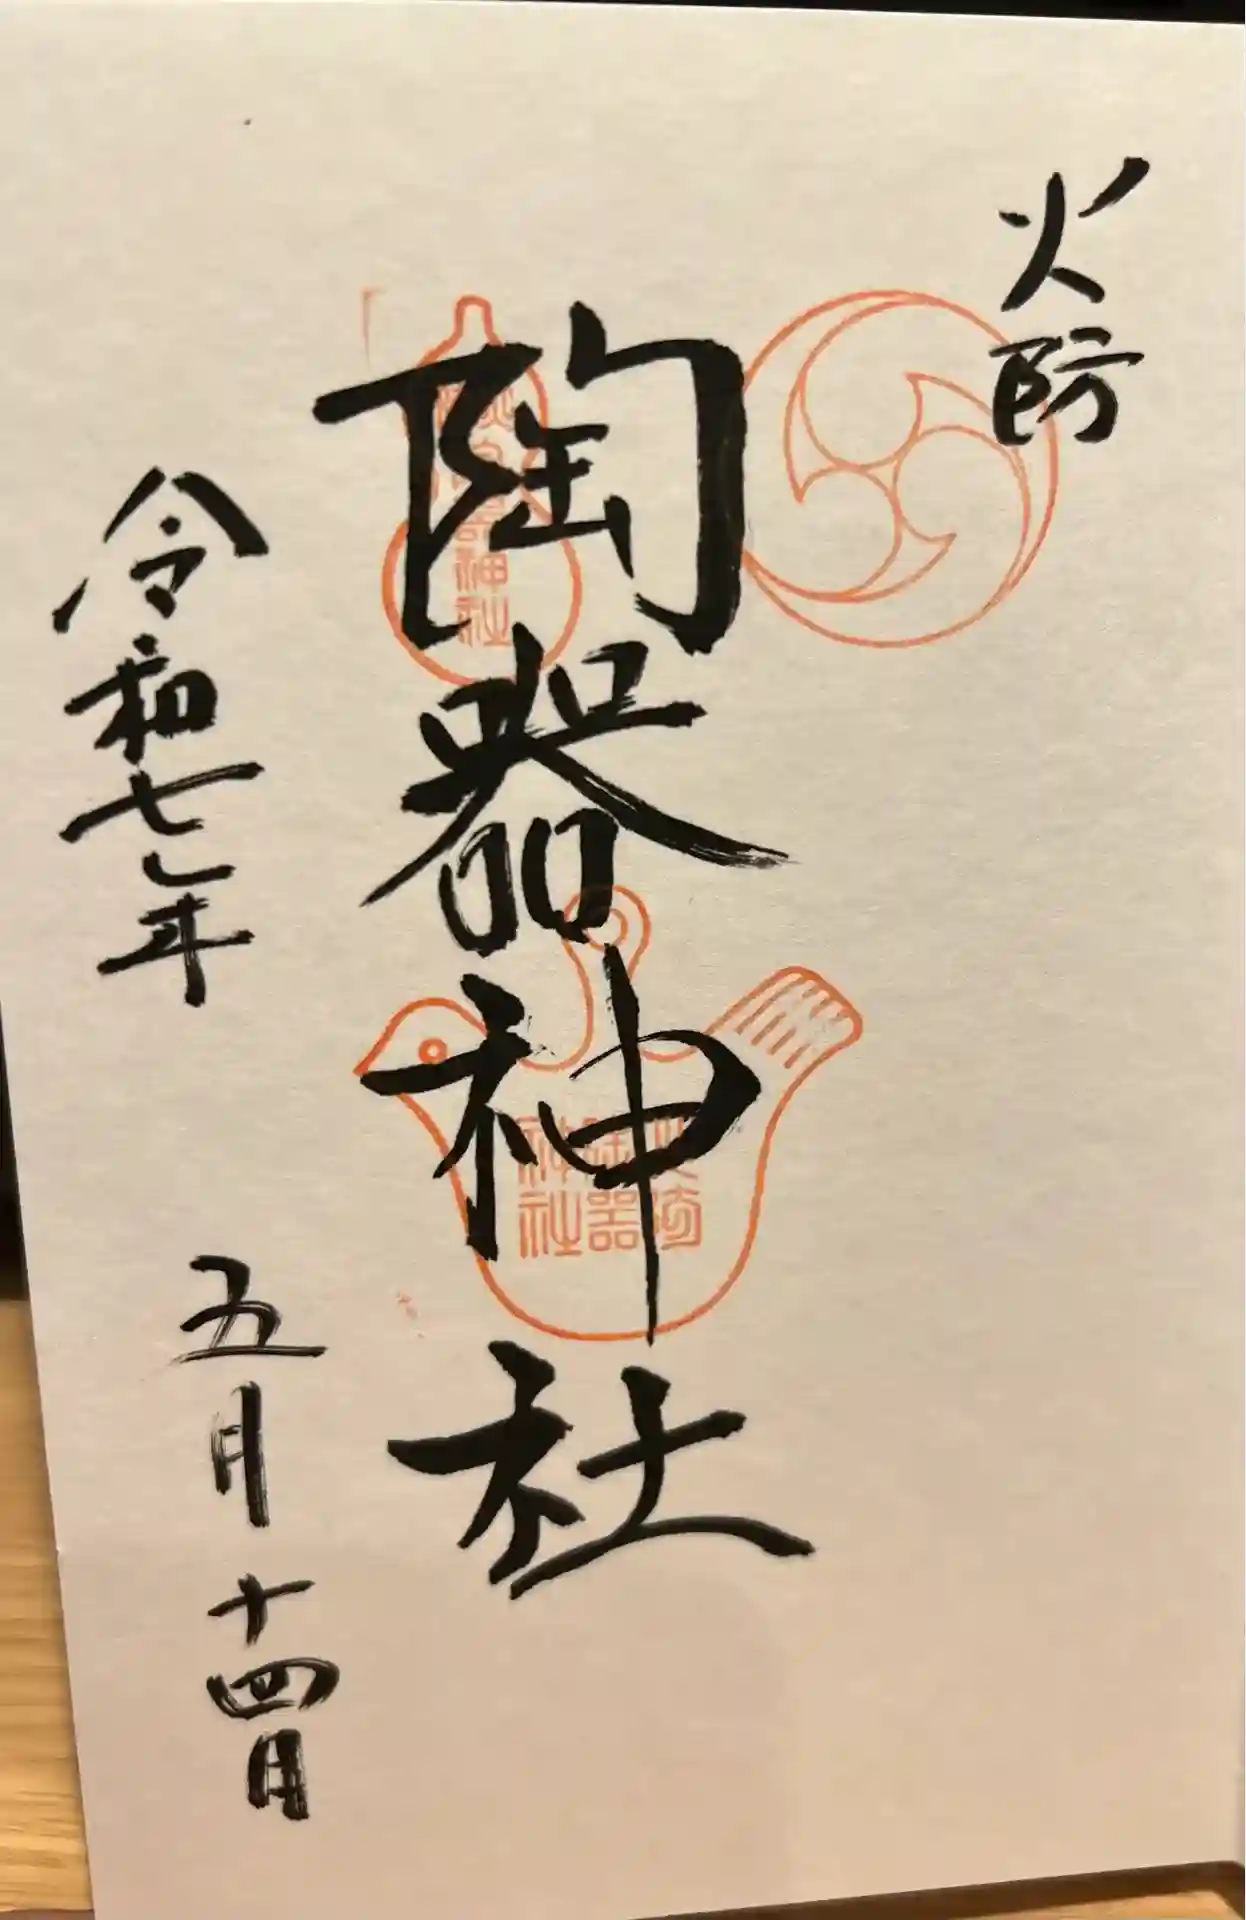 火防
陶器神社
令和七年 五月十四日
神社
陶器
神社